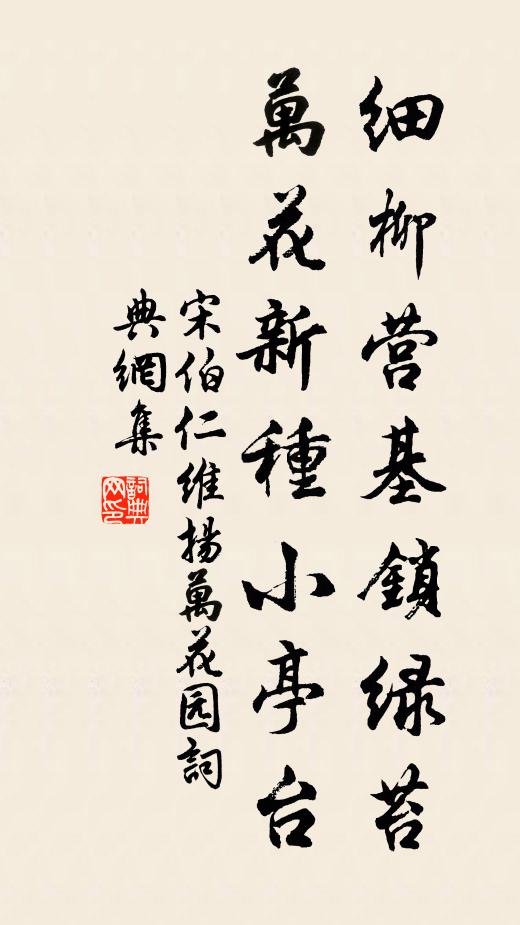 细柳营基鎖绿苔
萬花新種小亭台
宋伯仁维揚萬花园詞
典網集
詞典
网印